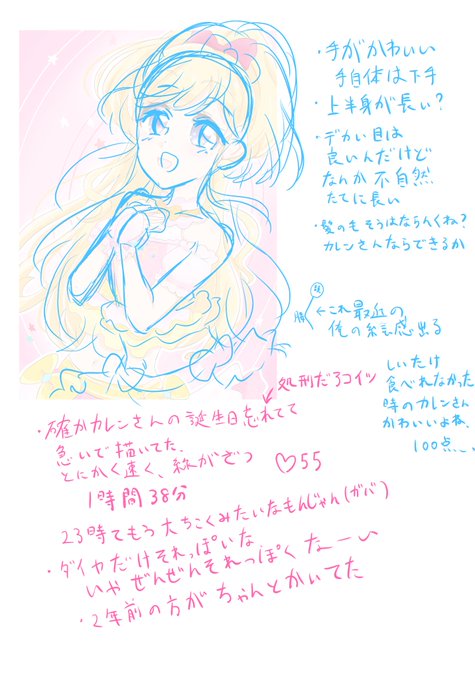 ・手がかわいい
手自体は下手
・上半身が長い?
・デカい目は
良いんだけど
なんか不自然
たてに長い
・髪のもそうはならんくね?
カレンさんならできるか
←これ最近の
俺の絵感出る
しいたけ
食べれなかった
時のカレンさん
かわいいよね、
100点、、
処刑だろコイツ
・確かカレンさんの誕生日忘れてて
急いで描いてた、
とにかく速く、線がざつ
♡55
1時間38分
23時でもう大ちこくみたいなもんじゃん(ガバ)
・ダイヤだけそれっぽいな
いやぜんぜんそれっぽくなーい
・2年前の方がちゃんとかいてた